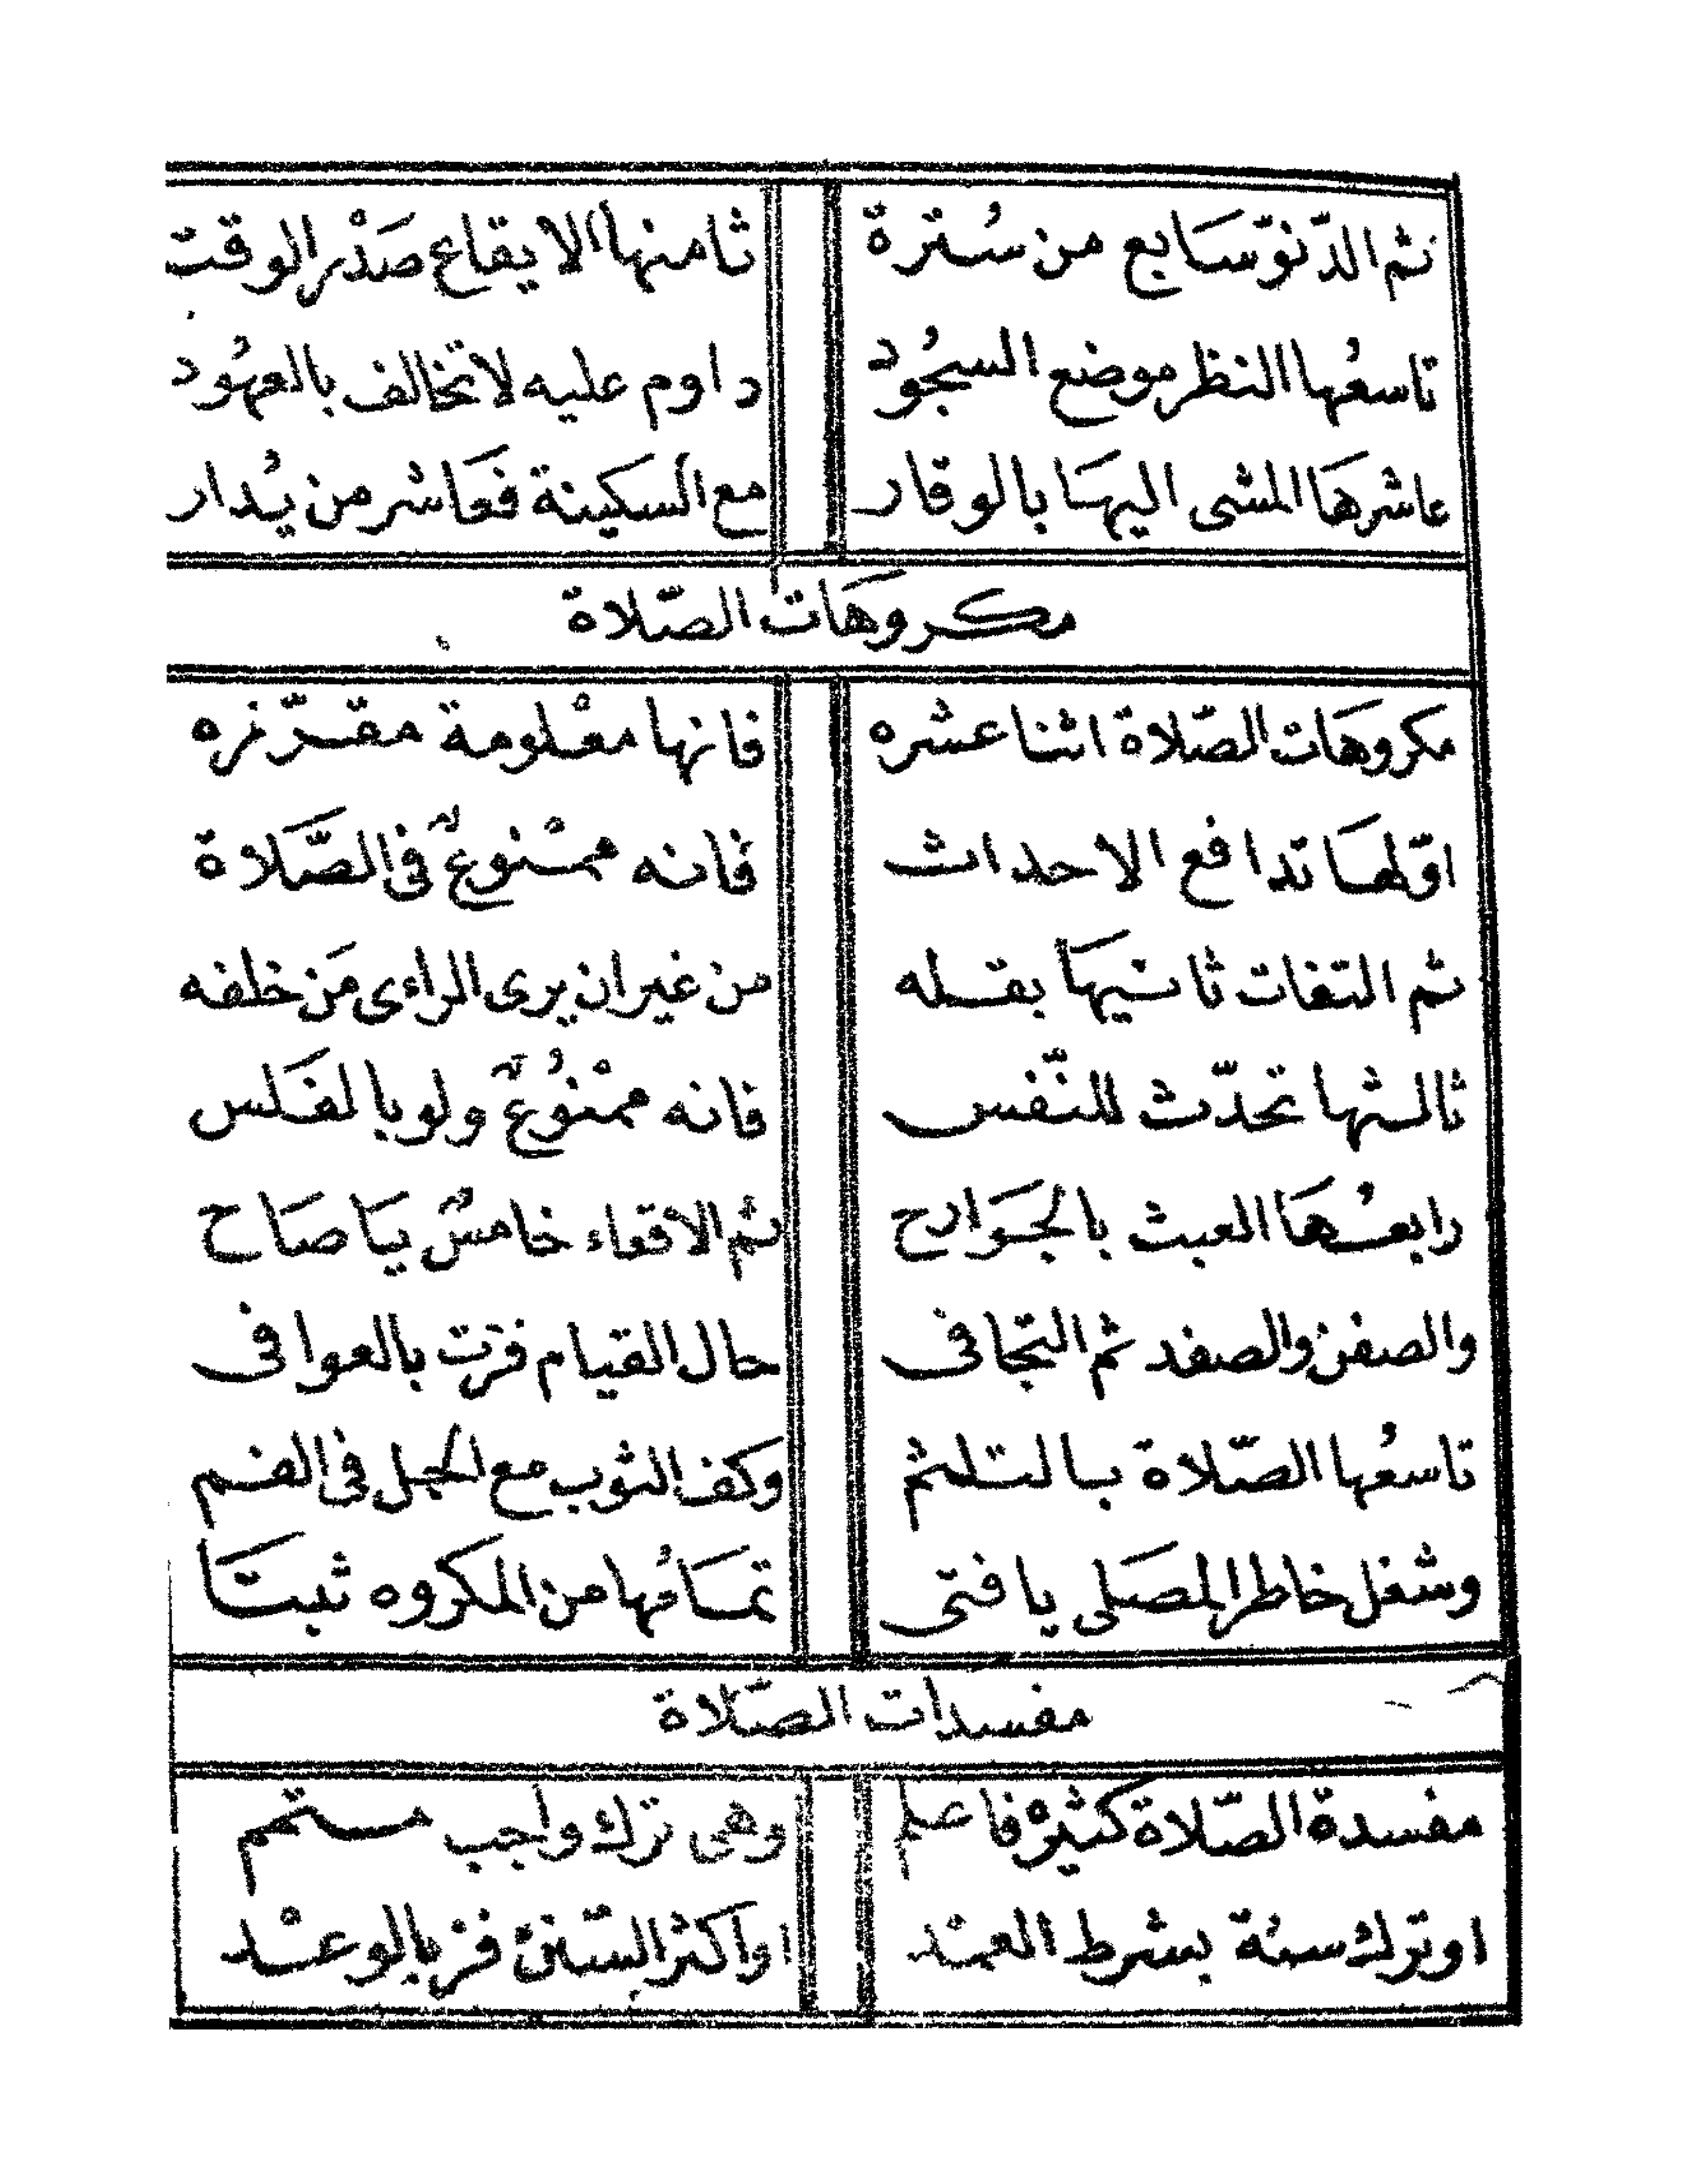 ثم الدّنوّ سَابع من سُترة ثامنها الايقاع صَدْر الوقت
تاسعُها النظر موضع السجُود داوم عليه لا تخالف بالعهُود
عاشرهَا المشى اليهَا بالوقار مع السكينة فعَاشر من يُدار
مكروهَات الصّلاة
مكروهَات الصّلاة اثنا عشره فانها معْلومة مقرّره
اوّلهَا تدافع الاحداث فانه ممْنوعٌ فى الصَّلاة
ثم التفات ثانيهَا بقله من غير ان يرى الراءى مَن خلفه
ثالثها تحدّث للنّفس فانه ممْنُوعٌ ولو بالفَلس
رابعُهَا العبث بالجَوارح ثم الاقعاء خامسٌ يَا صَاح
والصفن والصفد ثم التجافى حال القيام فزت بالعوافى
تاسعُها الصّلاة بالتلثم وكف الثوب مع الجبل فى الفم
وشغل خاطر المصَلى يا فتى تمَامُها من المكروه ثبتَا
مفسدات الصّلاة
مفسدة الصّلاة كثيرْة فاعلم وهى ترك واجب مستمم
او ترك سنة بشرط العمْد او اكثر السّنن فز بالوعْد